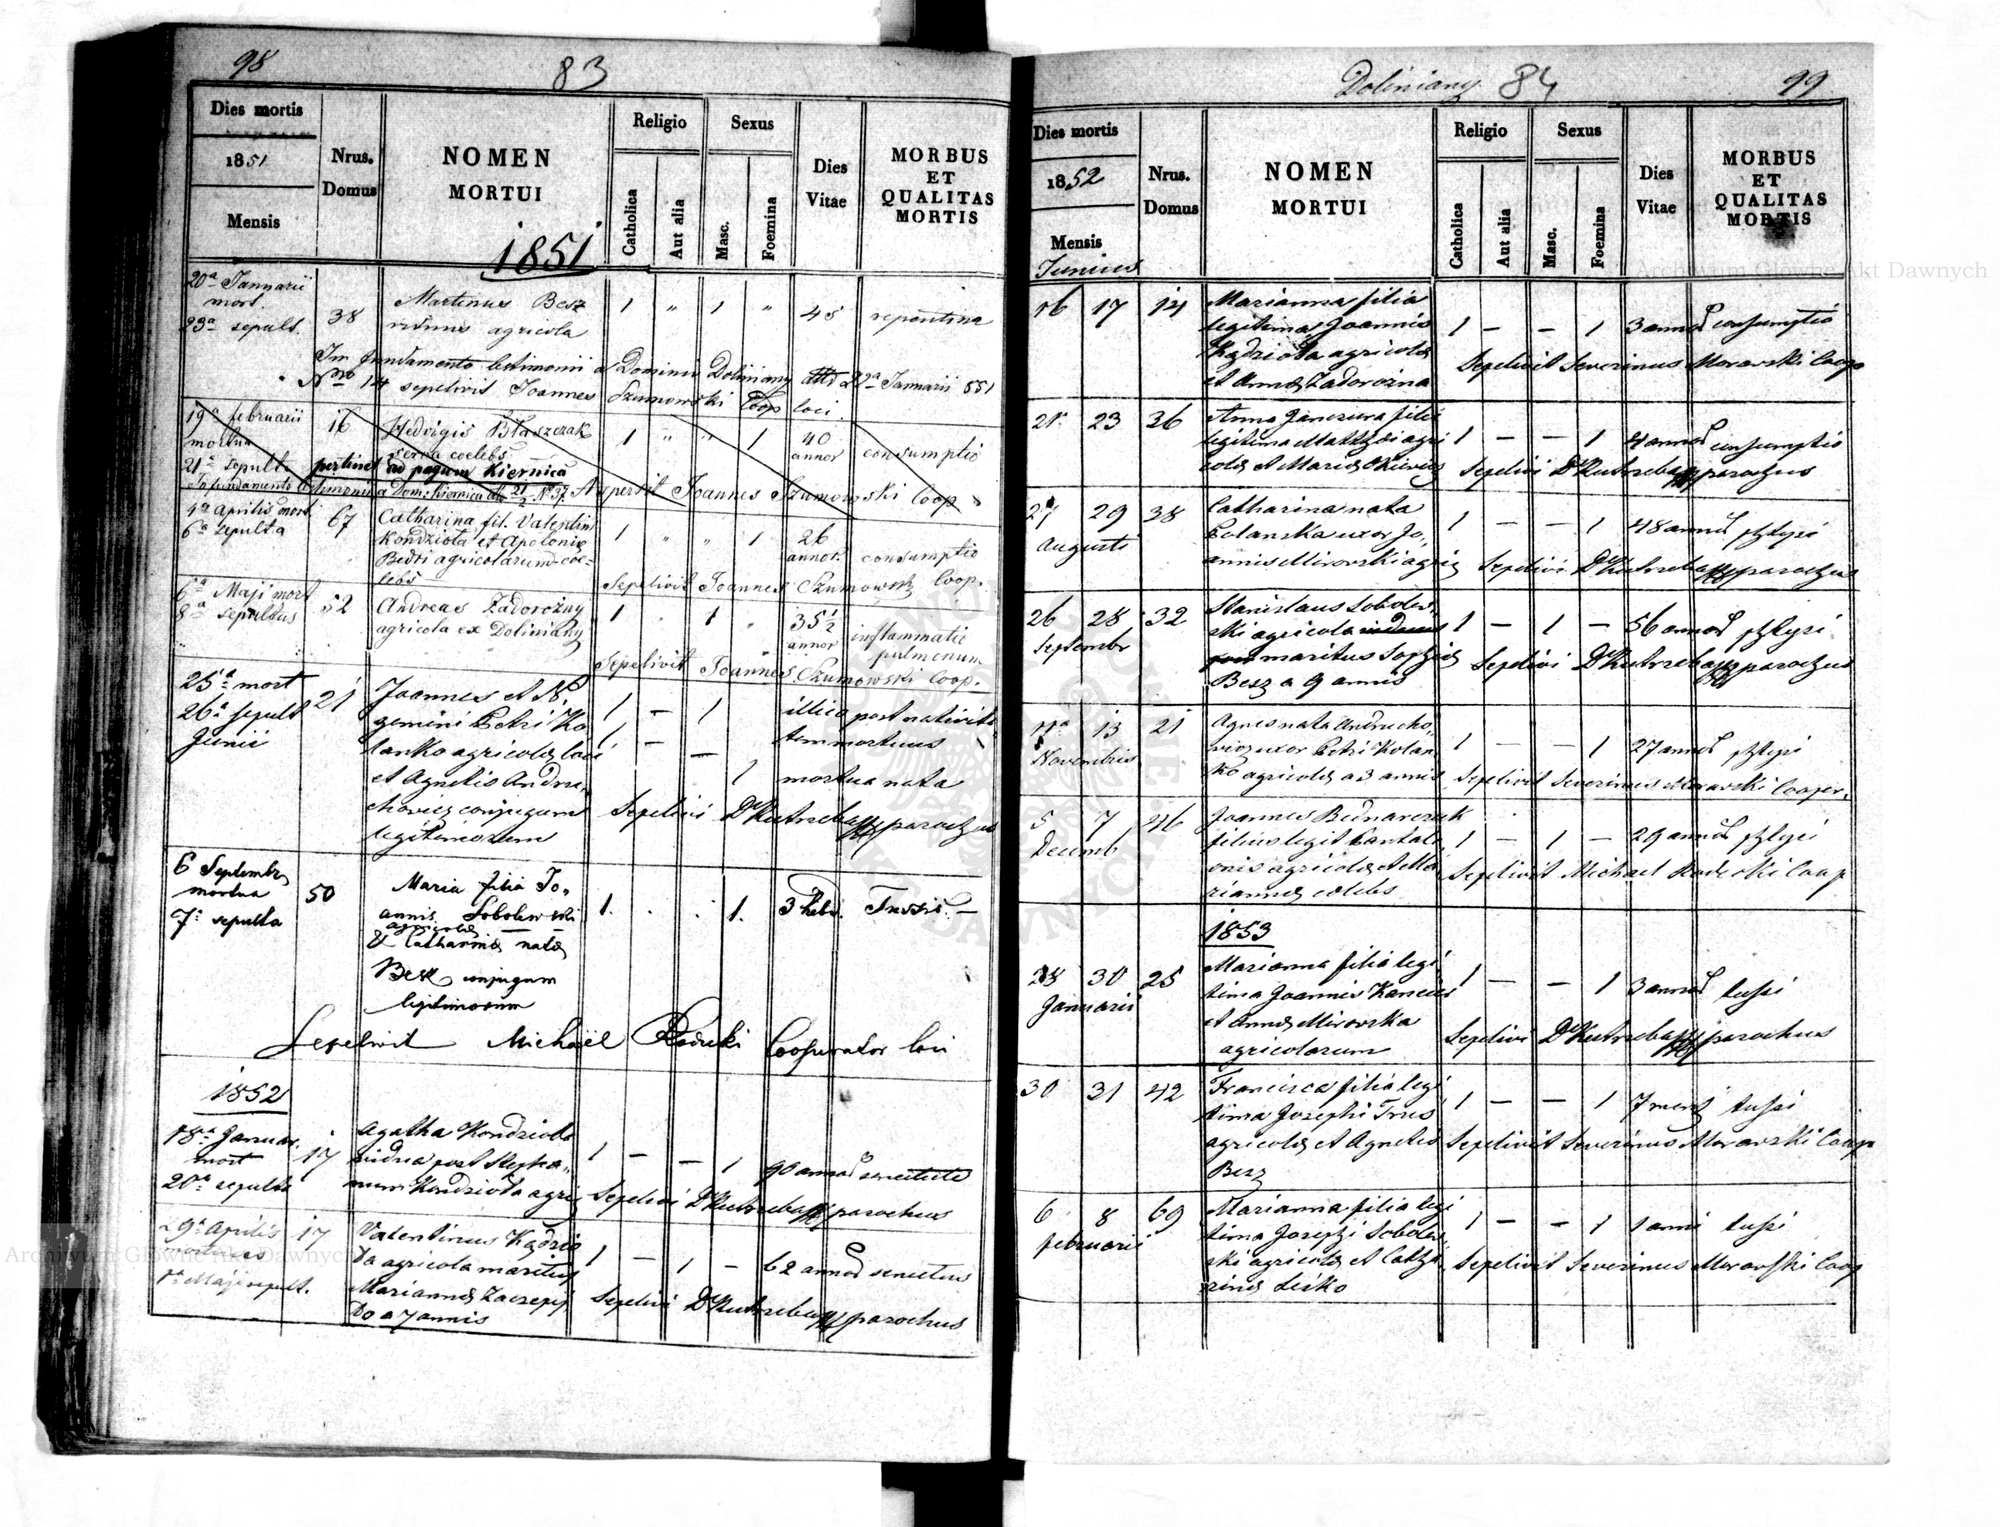 98
83
Dies mortis
1851
Mensis
Nrus.
Domus
NOMEN
MORTUI
Religio
Catholica
Aut alia
Sexus
Masc.
Foemina
Dies
Vitae
MORBUS
ET
QUALITAS
MORTIS
1851
20a Januarii
mort.
23a sepult.
38
Martinus Besz
agricola
1 " 1 "
45
repentina
Dominii Doliniany 22a Januarii 851
Nro 14 sepelivit Joannes Szumowski Coop loci.
19a februarii
mortua
21a sepulta
16
Hedvigis Błaszczak
coelebs
1 " " 1
40
annor
consumptio
pertinet ad pagum Kiernica
Joannes Szumowski Coop
4a Aprilis mort.
6a sepulta
67
Catharina fil. Valentini
Kondziota et Apolonię
Bedri agricolarum coe-
lebs
1 " " 1
26
annor.
consumptio
Sepelivit Joannes Szumowski Coop.
6a Maji mort
8a sepultus
52
Andreas Zadorożny
agricola ex Doliniany
1 " 1 "
35½
annor
inflammatio
pulmonum
Sepelivit Joannes Szumowski Coop.
25a mort
26a sepult
Junii
21
Joannes et N.
gemini Petri Ko
lanko agricolæ loci
et Agnetis Andru,
chowicz conjugum
legitimorum
1 — 1
1 — — 1
illico post nativita
tem mortuus
mortua nata
Sepelivi Dr Kutrzeba parochus
6 Septembr
mortua
7a sepulta
50
Maria filia Jo,
annis Sobolewski
agricolæ
& Catharinæ natæ
Besz conjugum
legitimorum
1. . . 1.
3 hebd.
Tussis. —
Sepelivit Michaël Radecki Cooperator loci
1852
18a Januar.
mort
20a sepulta
17
Agatha Kondziota
vidua post Stepha,
num Kondziota agric
1 — — 1
90 annor senectute
Sepelivi Dr Kutrzeba parochus
29a Aprilis
mortuus
1a Maji sepult.
17
Valentinus Kądzio
ta agricola maritus
Mariannæ
Do a 7 annis
1 — 1 —
62 annor senectus
Sepelivi Dr Kutrzeba parochus
Doliniany 84
99
Dies mortis
1852
Mensis
Junius
Nrus.
Domus
NOMEN
MORTUI
Religio
Catholica
Aut alia
Sexus
Masc.
Foemina
Dies
Vitae
MORBUS
ET
QUALITAS
MORTIS
16 17 14
Marianna filia
legitima Joannis
Kądziota agricolæ
et Annæ Zadorożna
1 — — 1
3 annor consumptio
Sepelivit Severinus Morawski Coop
21 23 36
Anna Janczura filia
legitima Matthæi agri
colæ et Mariæ
1 — — 1
4 annor consumptio
Sepelivi Dr Kutrzeba parochus
27 29 38
Augusti
Catharina nata
Polanska uxor Jo,
annis Mirowski agric
1 — — 1
48 annor phtysi
Sepelivi Dr Kutrzeba parochus
26 28 32
Septembr
Stanislaus Sobolew,
ski agricola
maritus Sophiæ
Besz a 9 annis
1 — 1 —
56 annor phtysi
Sepelivi Dr Kutrzeba parochus
11a 13 21
Novembris
Agnes nata Andrucho,
wicz uxor Petri Kolan,
ko agricolæ a 3 annis
1 — — 1
27 annor phtysi
Sepelivit Severinus Morawski Cooper.
5 7 46
Decemb
Joannes Bednarczuk
filius legit Pantale
onis agricolæ et Ma
riannæ cœlebs
1 — 1 —
29 annor phtysi
Sepelivit Michael Radecki Coop
1853
28 30 25
Januarii
Marianna filia legi
tima Joannis
et Annæ Mirowska
agricolarum
1 — — 1
3 annor tussi
Sepelivi Dr Kutrzeba parochus
30 31 42
Francisca filia legi
tima Josephi Trus
agricolæ et Agnetis
Besz
1 — — 1
7 mens tussi
Sepelivit Severinus Morawski Coop
6 8 69
februarii
Marianna filia legi
tima Josephi Sobolew,
ski agricolæ et Catha
rinæ Lesko
1 — — 1
1 anni tussi
Sepelivit Severinus Morawski Coop
Archiwum Główne Akt Dawnych
Archiwum Główne Akt Dawnych